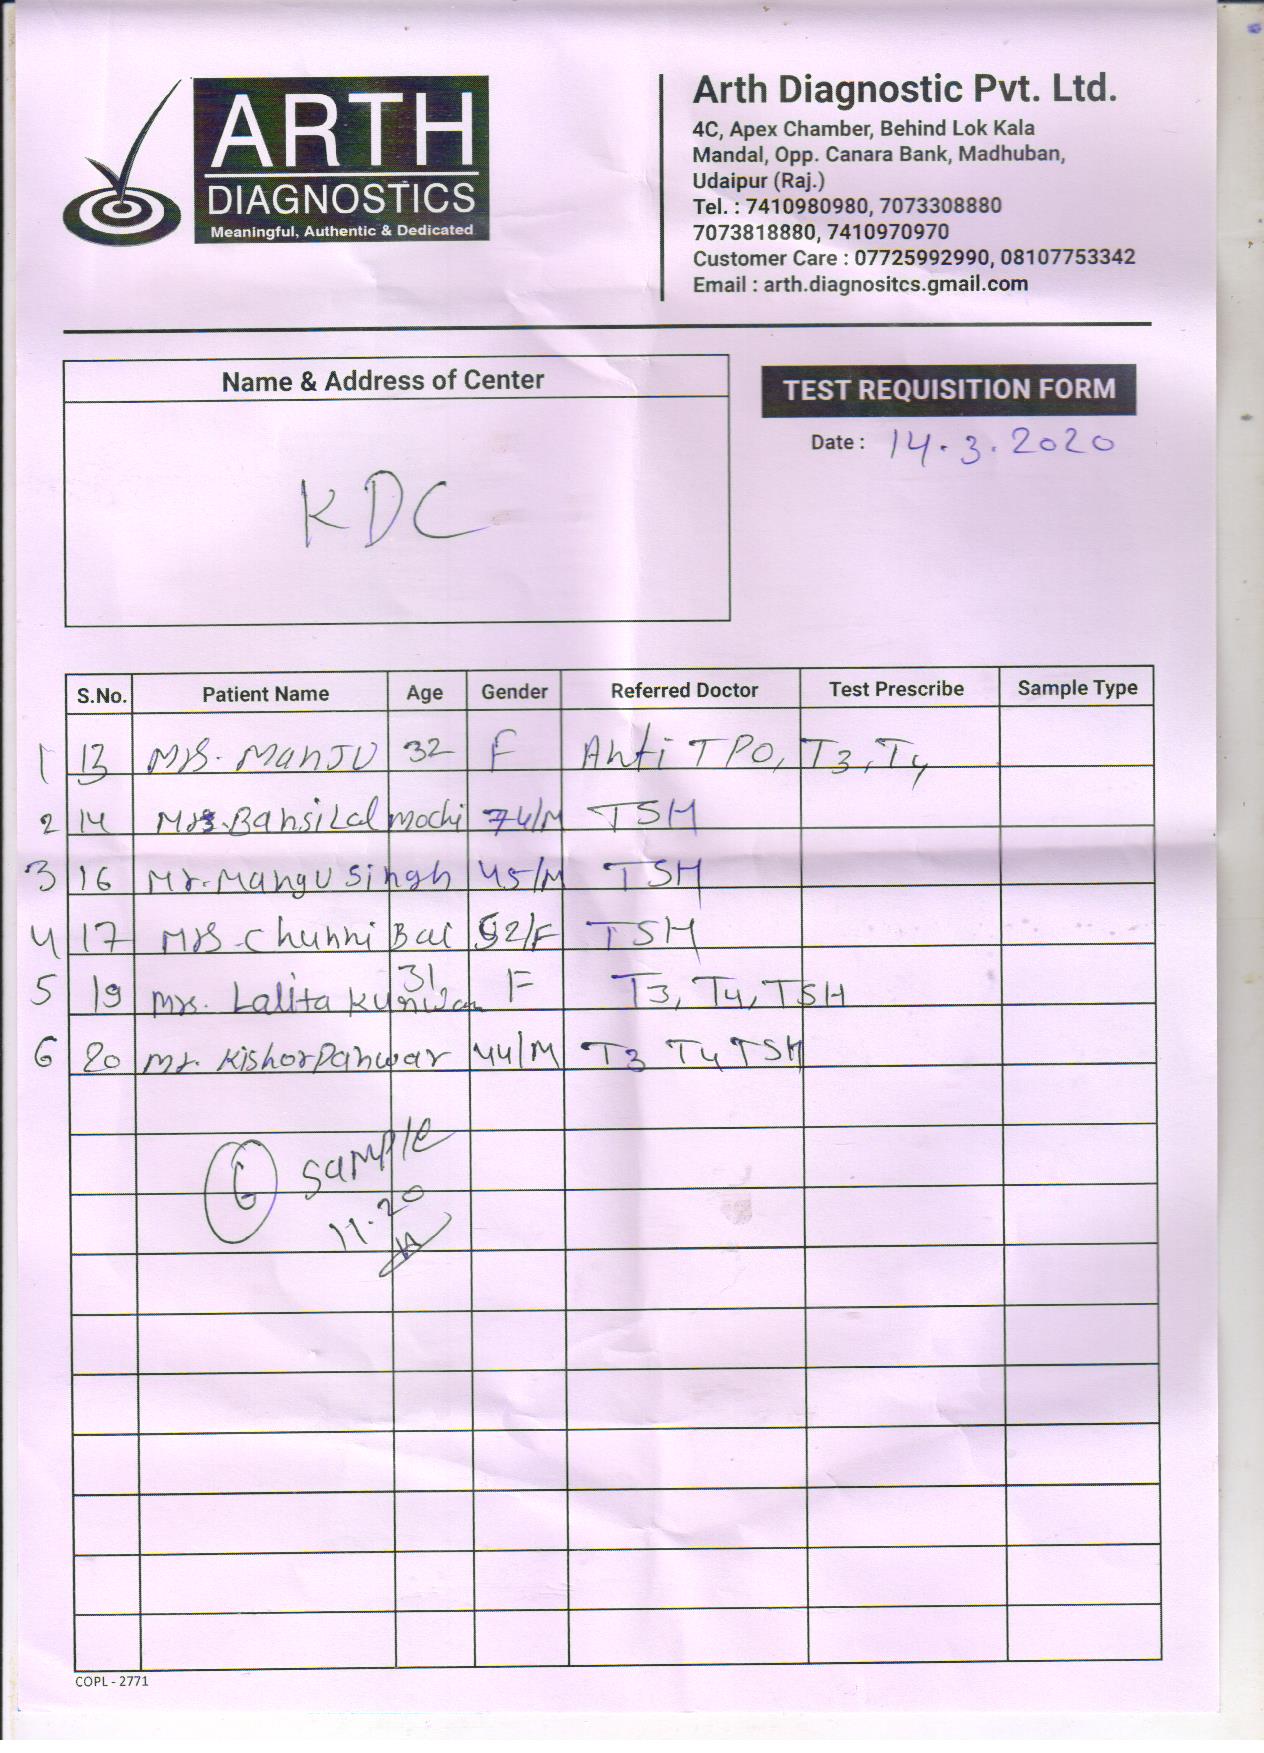 ARTH
DIAGNOSTICS
Meaningful, Authentic & Dedicated
Arth Diagnostic Pvt. Ltd.
4C, Apex Chamber, Behind Lok Kala
Mandal, Opp. Canara Bank, Madhuban,
Udaipur (Raj.)
Tel. : 7410980980, 7073308880
7073818880, 7410970970
Customer Care : 07725992990, 08107753342
Email : arth.diagnositcs.gmail.com
Name & Address of Center
KDC
TEST REQUISITION FORM
Date : 14.3.2020
S.No. Patient Name Age Gender Referred Doctor Test Prescribe Sample Type
1 13 Mrs. Manju 32 F Anti TPO, T3, T4
2 14 Bansilal mochi 74/M TSH
3 16 Mr. Mangu Singh 45/M TSH
4 17 Mrs. Chunni Bai 52/F TSH
5 19 Mrs. Lalita Kunwar 31 F T3, T4, TSH
6 20 Mr. Kishor Panwar 44/M T3 T4 TSH
6 Sample
11.20
COPL - 2771